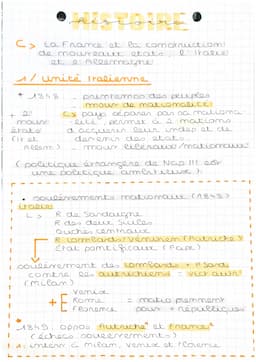 HISTOIRE
C > La France et la construction
de nouveaux états : l'Italie
et l'Allemagne
1/ Unité Italienne
* 1848 _ printemps des peuples
_ mouv de nationalité
+ 2
mouv
états
(It et
Allem)
pays séparés par sa nationa
-lité, permet à 2 nations
d'acquérir leur indep et de
devenir des états
_ mouv libéraux/nationaux
(politique étrangère de Nap III est
une politique ambitieuse)
• soulèvements nationaux (1848)
Italie
L > R de Sardaigne
R des deux Siciles
duchés centraux
R lombards/vénitien (Autriche)
État pontificaux (Pape)
soulèvement des lombards + R Sard
contre les autrichiens =
(Milan)
+ E Venise
Rome
Florence
= matio prennent
pour + républiques
* 1849 : après Autriche et France
(échecs soulèvements)
à Milan, Venise et Florence